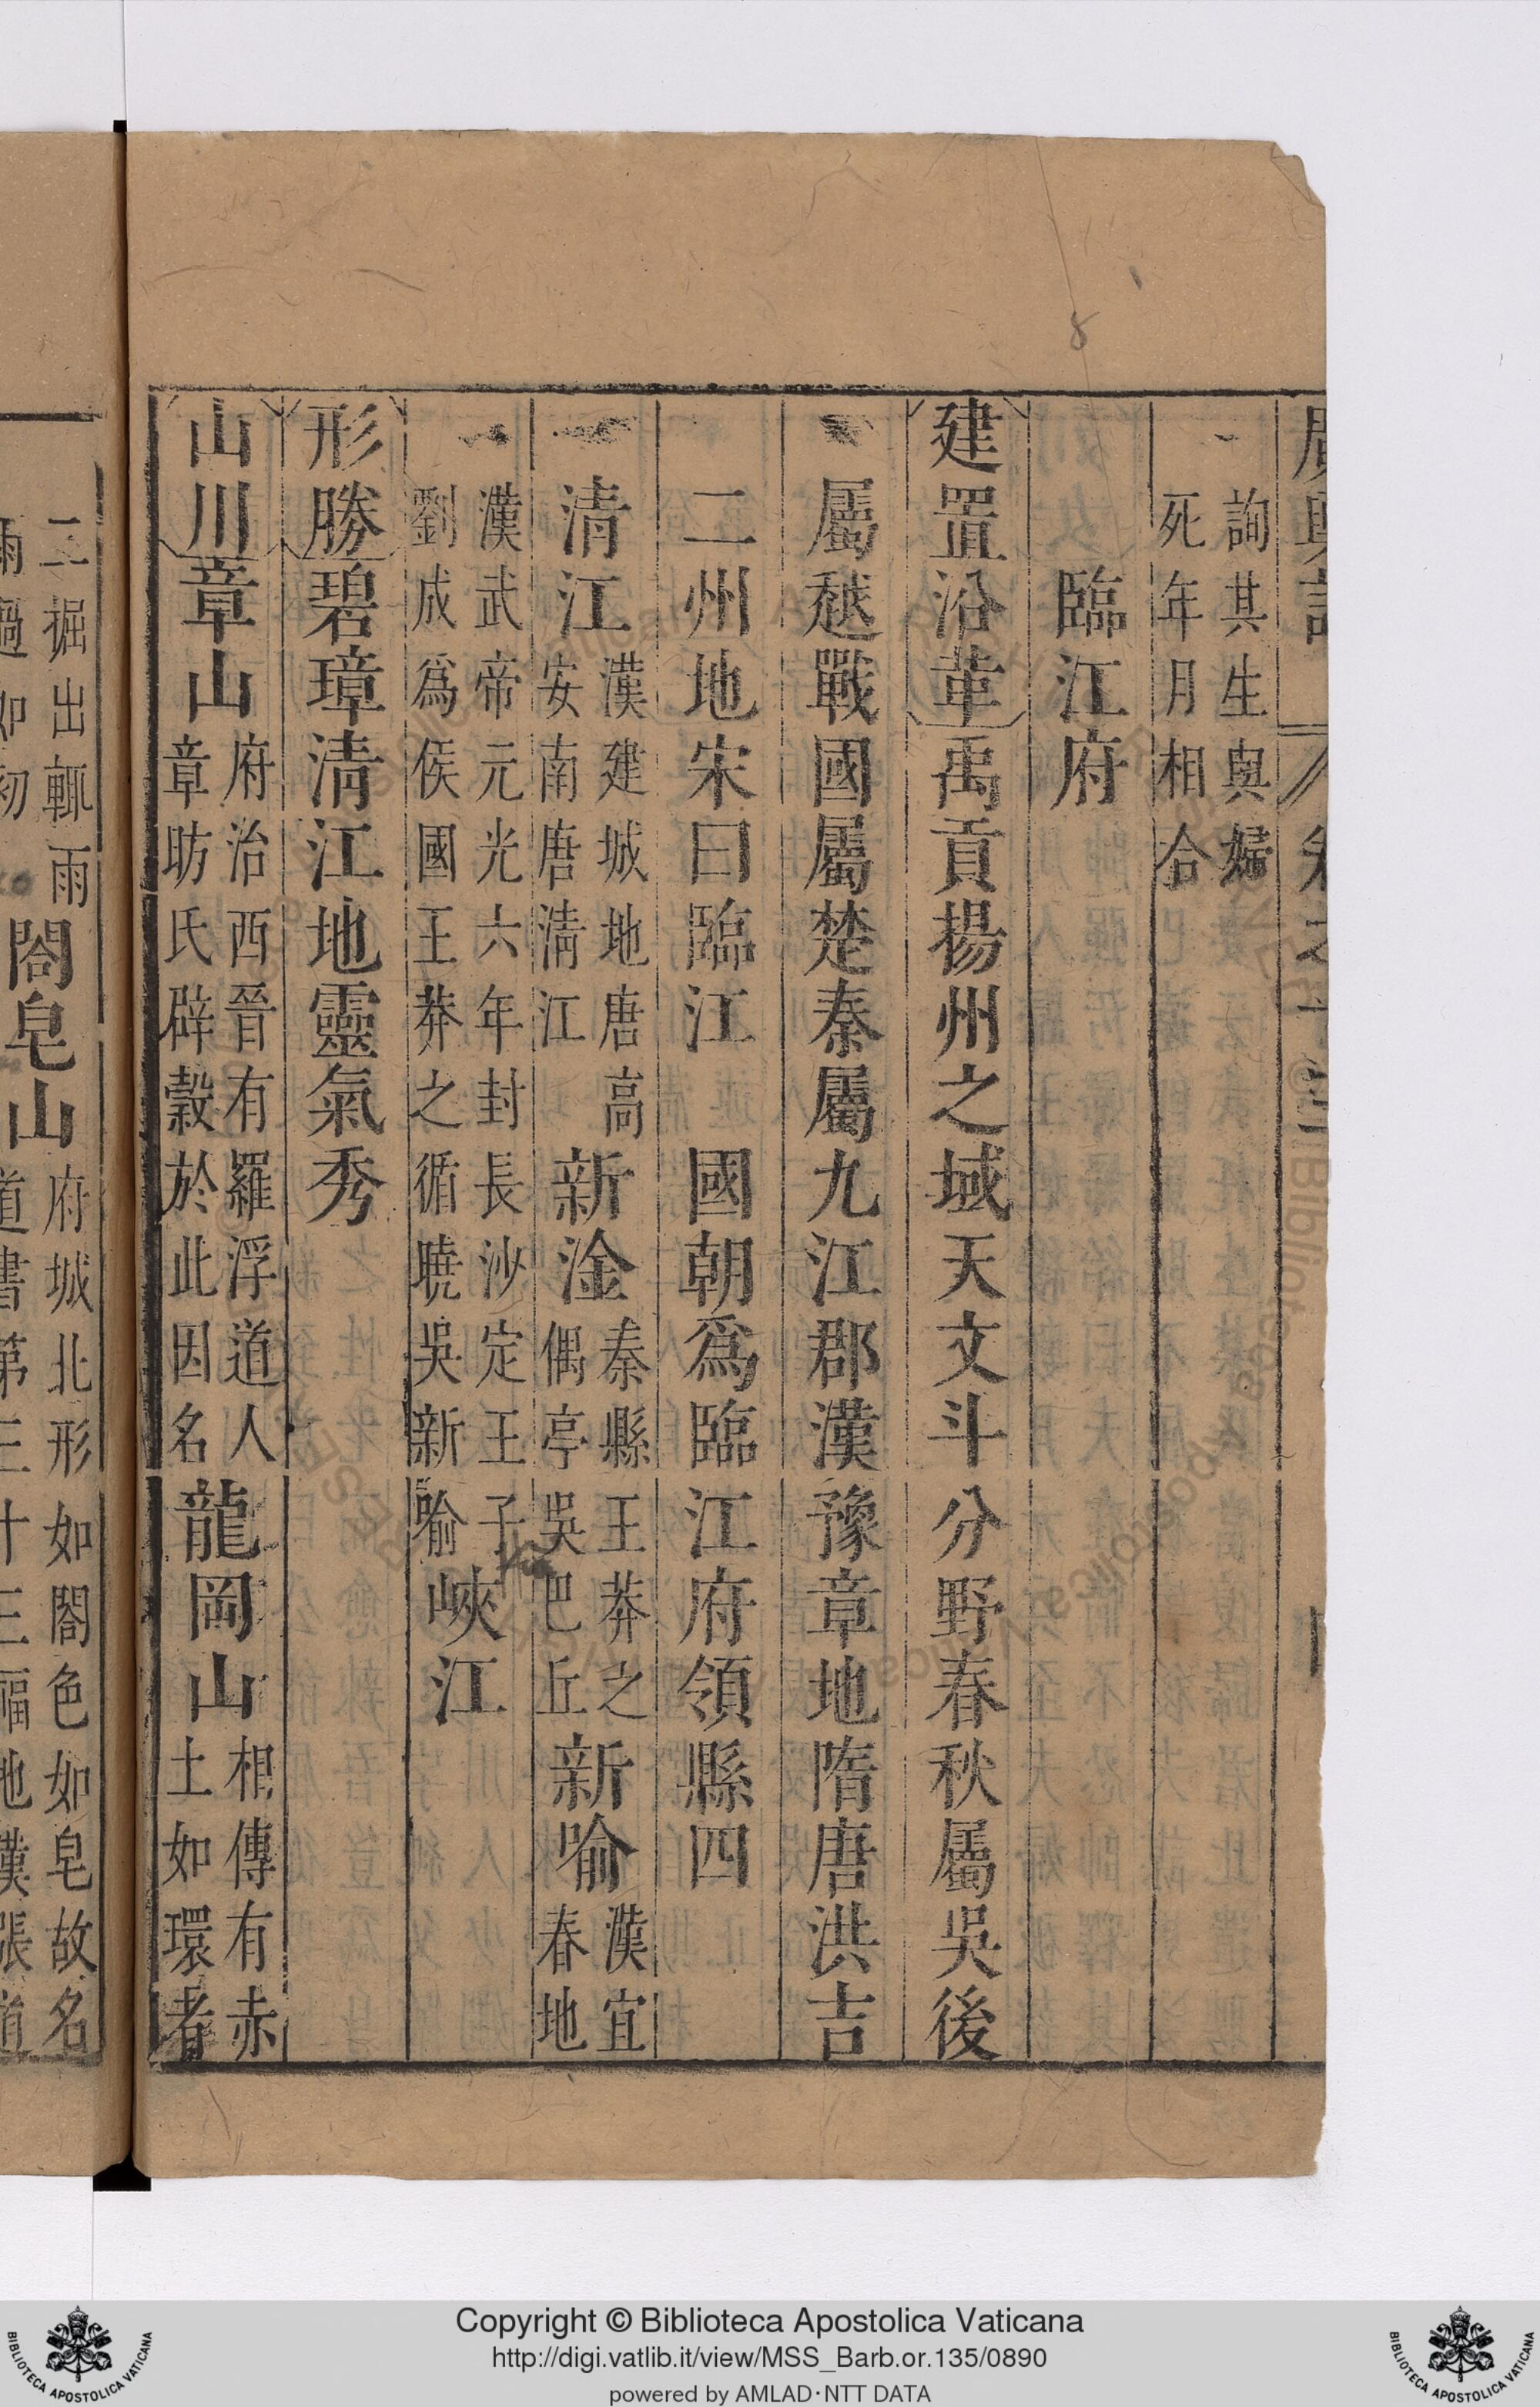 詢其生與婦
死年月相合
臨江府
建置沿革禹貢揚州之域天文斗分野春秋屬吳後
屬越戰國屬楚秦屬九江郡漢豫章地隋唐洪吉
二州地宋曰臨江 國朝爲臨江府領縣四
清江漢建城地唐高安南唐清江 新淦秦縣王莽之偶亭吳巴丘 新喻漢宜春地
漢武帝元光六年封長沙定王子劉成爲侯國王莽之循曉吳新喻 峽江
形勝碧璋清江地靈氣秀
山川章山府治西晉有羅浮道人章昉氏辟穀於此因名 龍岡山相傳有赤土如環者
二掘出輒雨
雨過如初 閤皂山府城北形如閤色如皂故名
道書第三十三福地漢張道
Copyright © Biblioteca Apostolica Vaticana
http://digi.vatlib.it/view/MSS_Barb.or.135/0890
powered by AMLAD·NTT DATA
BIBLIOTECA APOSTOLICA VATICANA
BIBLIOTECA APOSTOLICA VATICANA